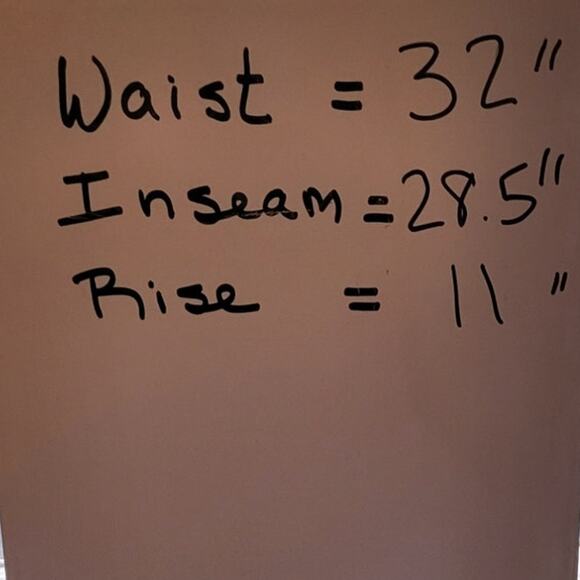 Waist = 32"
Inseam = 28.5"
Rise = 11 "